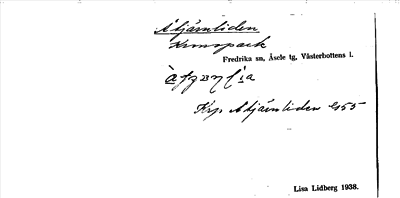 Åtjärnliden
Kronopark
Fredrika sn, Åsele tg, Västerbottens l.
Krp Atjärnliden G55
Lisa Lidberg 1938.